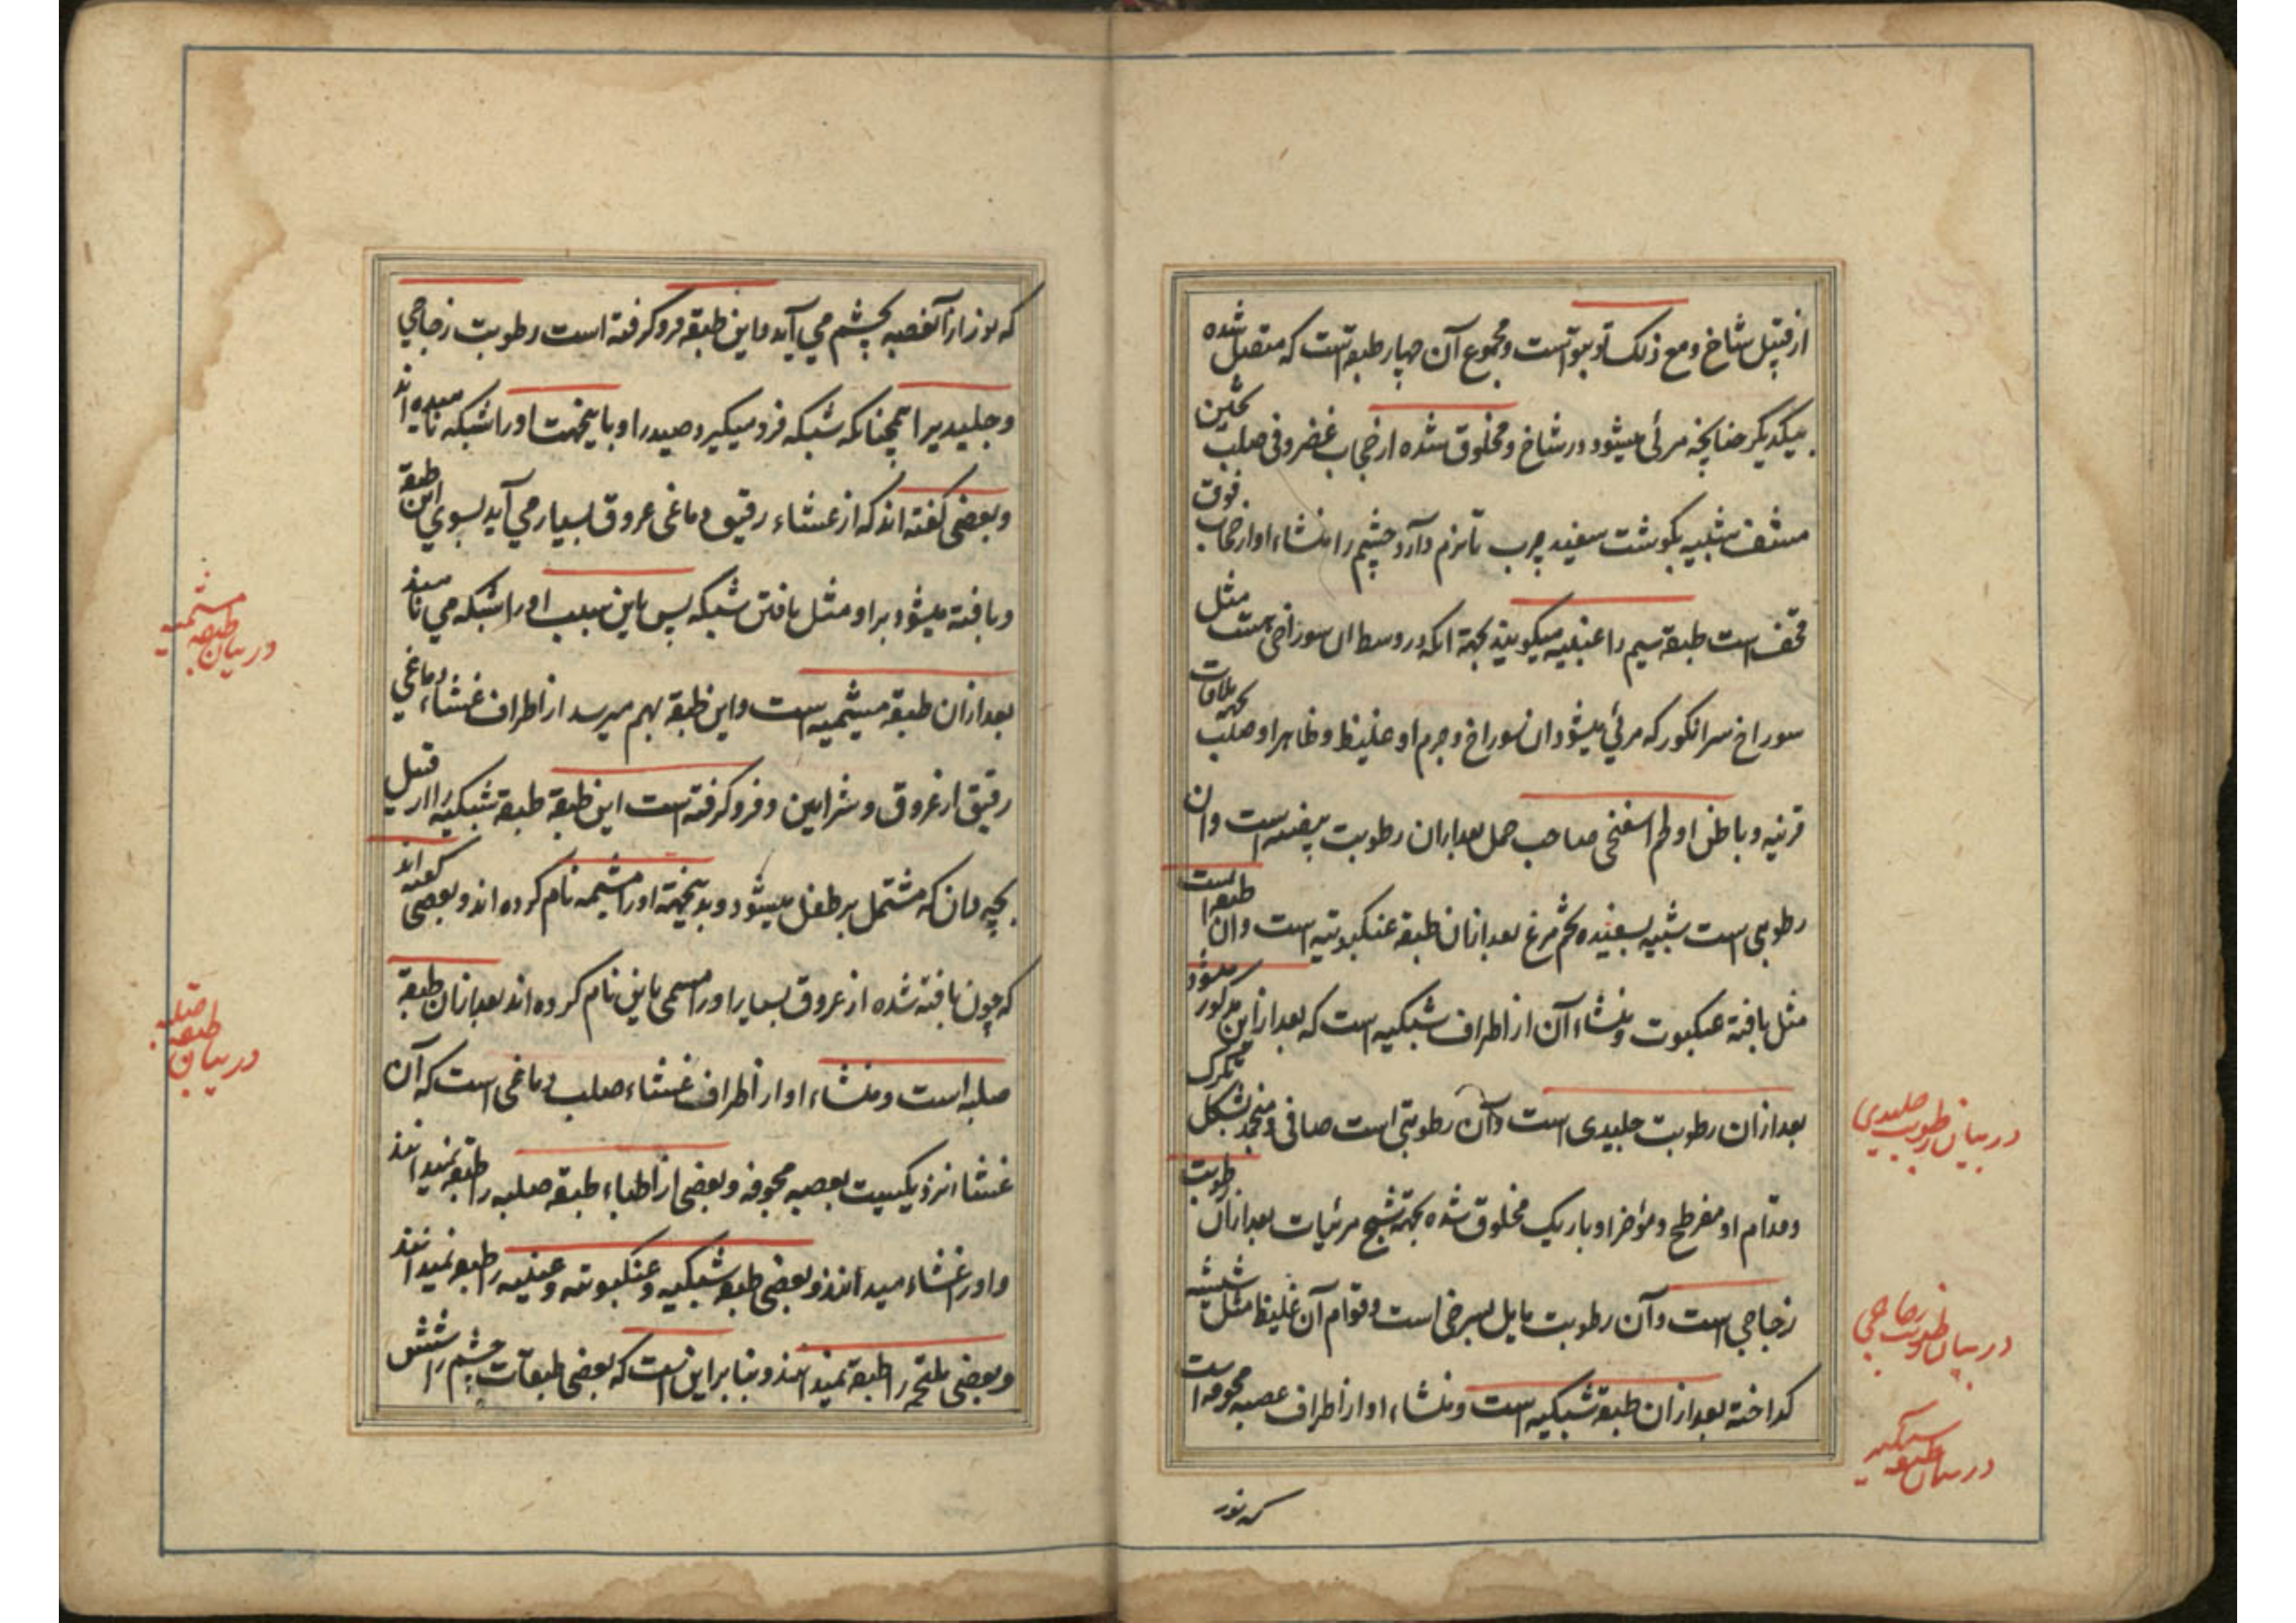 از قبیل شاخ و مع ذلک تو بر تو است و مجموع آن چهار طبقه است که متصل شده
بیکدیگر چنانچه مرئی میشود در شاخ و مخلوق شده از حجاب غضروفی صلب
مشف شبیه بگوشت سفید چرب تا نرم دارد چشم را منشاء او از حجاب فوق
قحف است طبقه سیم را عنبیه میگویند بجهة آنکه در وسط آن سوراخی هست مثل
سوراخ سر انگور که مرئی میشود آن سوراخ و جرم او غلیظ و ظاهر او صلب بجهة ملاقات
قرنیه و باطن او لحم اسفنجی صاحب خمل بعد از آن رطوبت بیضیه است و آن
رطوبی است شبیه بسفیده تخم مرغ بعد از آن طبقه عنکبوتیه است و آن طبقه است
مثل بافته عنکبوت و منشاء آن از اطراف شبکیه است که بعد از این مذکور میشود
بعد از آن رطوبت جلیدی است و آن رطوبتی است صافی و منجمد بشکل تگرگ
و قدام او مفرطح و مؤخر او باریک مخلوق شده بجهة تشبح مرئیات بعد از آن رطوبت
زجاجی است و آن رطوبت مایل بسرخی است و قوام آن غلیظ مثل شیشه
کداخته بعد از آن طبقه شبکیه است و منشاء او از اطراف عصبه مجوفه است
که نور
در بیان رطوبت جلیدی
در بیان رطوبت زجاجی
در بیان طبقه شبکیه
که نور از آن عصبه بچشم می آید و این طبقه فرو کرفته است رطوبت زجاجی
و جلیدیرا همچنانکه شبکه فرو میکیرد صید را و باینجهت او را شبکه نامیده اند
و بعضی کفته اند که از غشاء رقیق دماغی عروق بسیار می آید بسوی این طبقه
و بافته میشود بر او مثل بافتن شبکه پس باین سبب او را شبکه می نامند
بعد از آن طبقه میشمیه است و این طبقه بهم میرسد از اطراف غشاء دماغی
رقیق از عروق و شرایین و فرو کرفته است این طبقه طبقه شبکیه را از قبیل
بچه دان که مشتمل بر طفل میشود و بدینجهة او را مشیمه نام کرده اند و بعضی کفته اند
که چون بافته شده از عروق بسیار او را مسمی باین نام کرده اند بعد از آن طبقه
صلبه است و منشاء او از اطراف غشاء صلب دماغی است که آن
غشا نزدیکیست بعصبه مجوفه و بعضی از اطباء طبقه صلبیه را طبقه نمیدانند
و او را غشاء میدانند و بعضی طبقه شبکیه و عنکبوتیه و عنبیه را طبقه نمیدانند
و بعضی ملتحمه را طبقه نمیدانند و بنا بر این است که بعضی طبقات چشم را شش
در بیان طبقه مشیمیه
در بیان طبقه صلبه